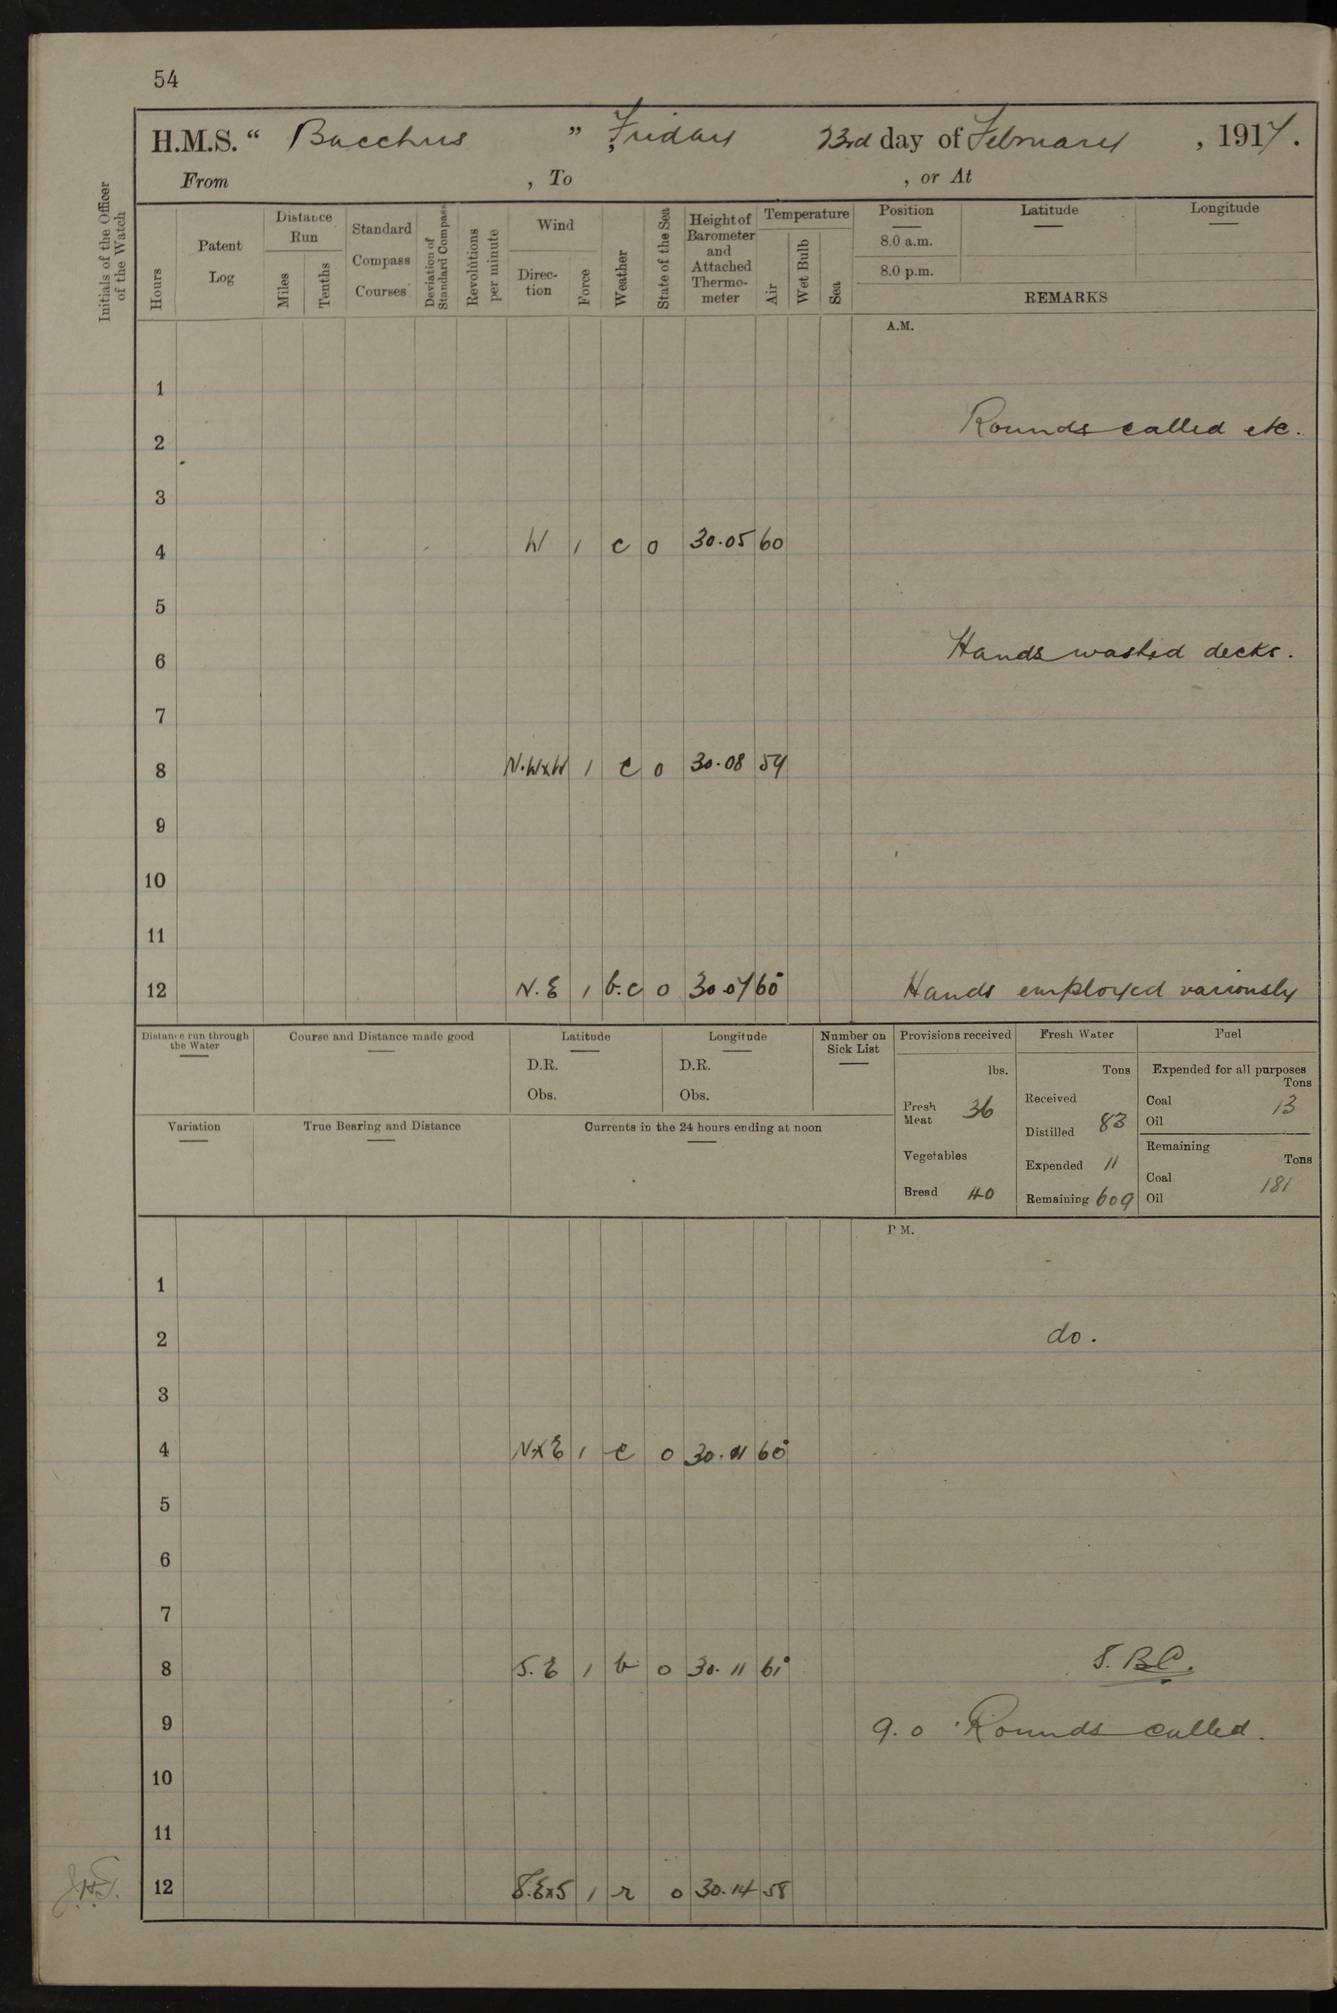 54
H.M.S. “ Bacchus ” , Friday 23rd day of February , 1917.
From , To , or At
Initials of the Officer of the Watch
Hours
Patent Log
Distance Run
Miles
Tenths
Standard Compass Courses
Deviation of Standard Compass
Revolutions per minute
Wind
Direc-tion
Force
Weather
State of the Sea
Height of Barometer and Attached Thermo-meter
Temperature
Air
Wet Bulb
Sea
Position Latitude Longitude
8.0 a.m.
8.0 p.m.
REMARKS
A.M.
1
2 Rounds called etc.
3
4 W 1 c 0 30.05 60
5
6 Hands washed decks.
7
8 N.WxW 1 c 0 30.08 59
9
10
11
12 N.E 1 b.c 0 30.07 60° Hands employed variously
Distance run through the Water
Course and Distance made good
Latitude
D.R.
Obs.
Longitude
D.R.
Obs.
Number on Sick List
Provisions received
lbs.
Fresh Meat 36
Vegetables
Bread 40
Fresh Water
Tons
Received
Distilled 83
Expended 11
Remaining 609
Fuel
Expended for all purposes
Tons
Coal 13
Oil
Remaining
Tons
Coal 181
Oil
Variation
True Bearing and Distance
Currents in the 24 hours ending at noon
P M.
1
2 do.
3
4 NxE 1 c 0 30.11 60°
5
6
7
8 S.E 1 b 0 30.11 61° S.B.C.
9 9.0 Rounds called.
10
11
12 S.ExS 1 r 0 30.14 58